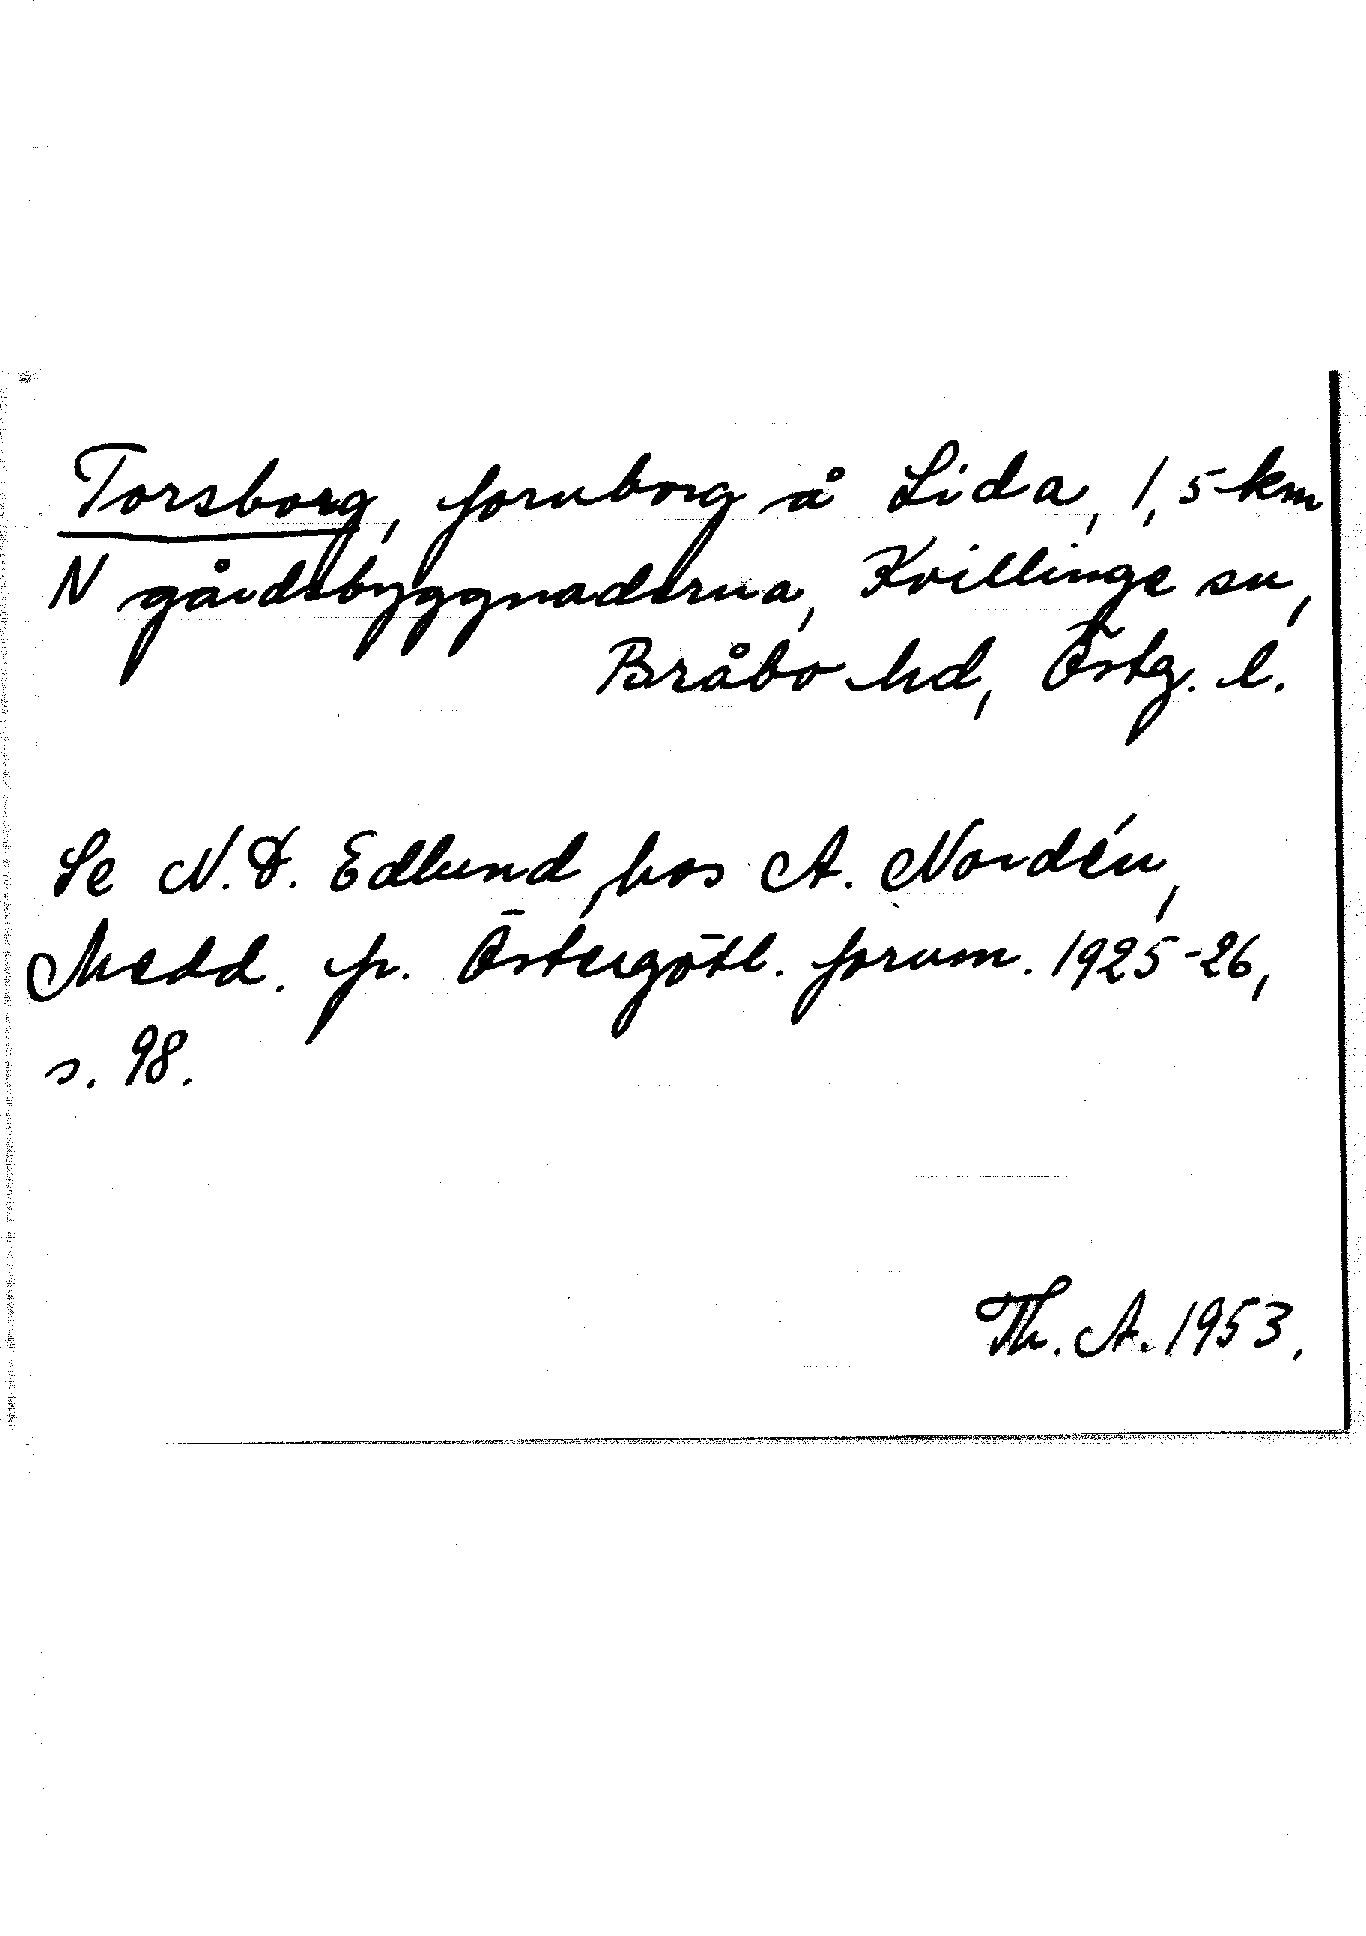 Torsborg, fornborg å Lida, 1,5 km
N gårdsbyggnaderna, Kvillinge sn,
Bråbo hd, Östg. l.
Se N. D. Edlund, hos A. Nordén,
Medd. fr. Östergötl. fornm. 1925-26,
s. 98.
Th. A. 1953.